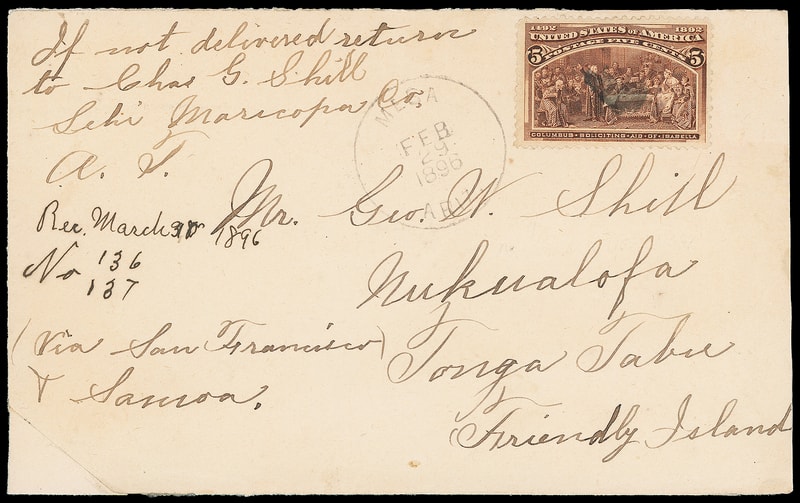 If not delivered return
to Chas G. Shill
Lehi Maricopa Co.
A. T.
1492 1892
UNITED STATES OF AMERICA
POSTAGE FIVE CENTS
5 5
COLUMBUS SOLICITING AID OF ISABELLA
MESA
FEB
29
1896
ARIZ
Mr. Geo. W. Shill
Nukualofa
Tonga Tabu
Friendly Island
Rec. March 30 1896
No 136
137
(Via San Francisco)
& Samoa.